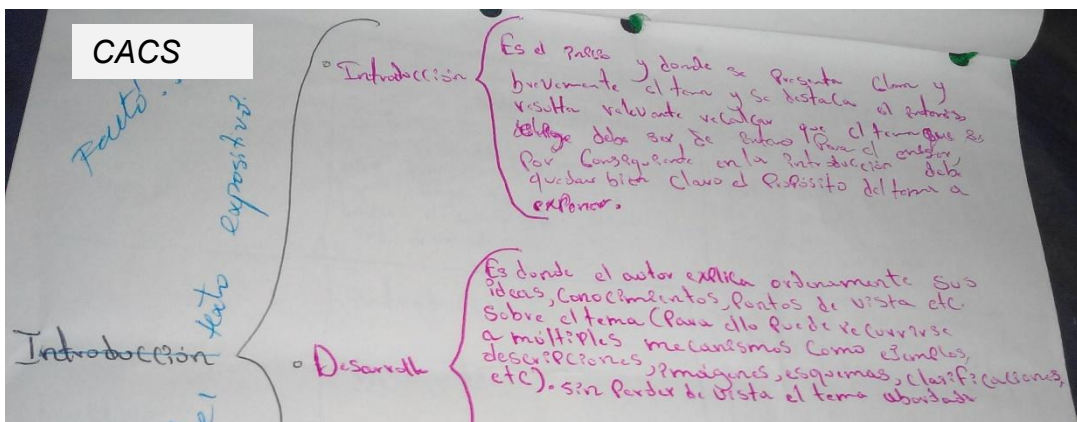 CACS
texto expositivo.
Introducción
Introducción
Es el inicio y donde se Presenta Clara y
brevemente el tema y se destaca el interés
resulta relevante recalcar que el tema que se
debe ser de interes Para el emisor,
Por Consequente en la introducción debe
quedar bien Claro el Propósito del tema a
exponer.
Desarroll
Es donde el autor explica ordenamente sus
ideas, Conocimientos, Pontos de vista etc.
Sobre el tema (Para ello Puede recurrirse
a múltiples mecanismos Como ejemplos,
descripciones, imágenes, esquemas, Clarificaciones,
etc). sin Perder de vista el tema abordado